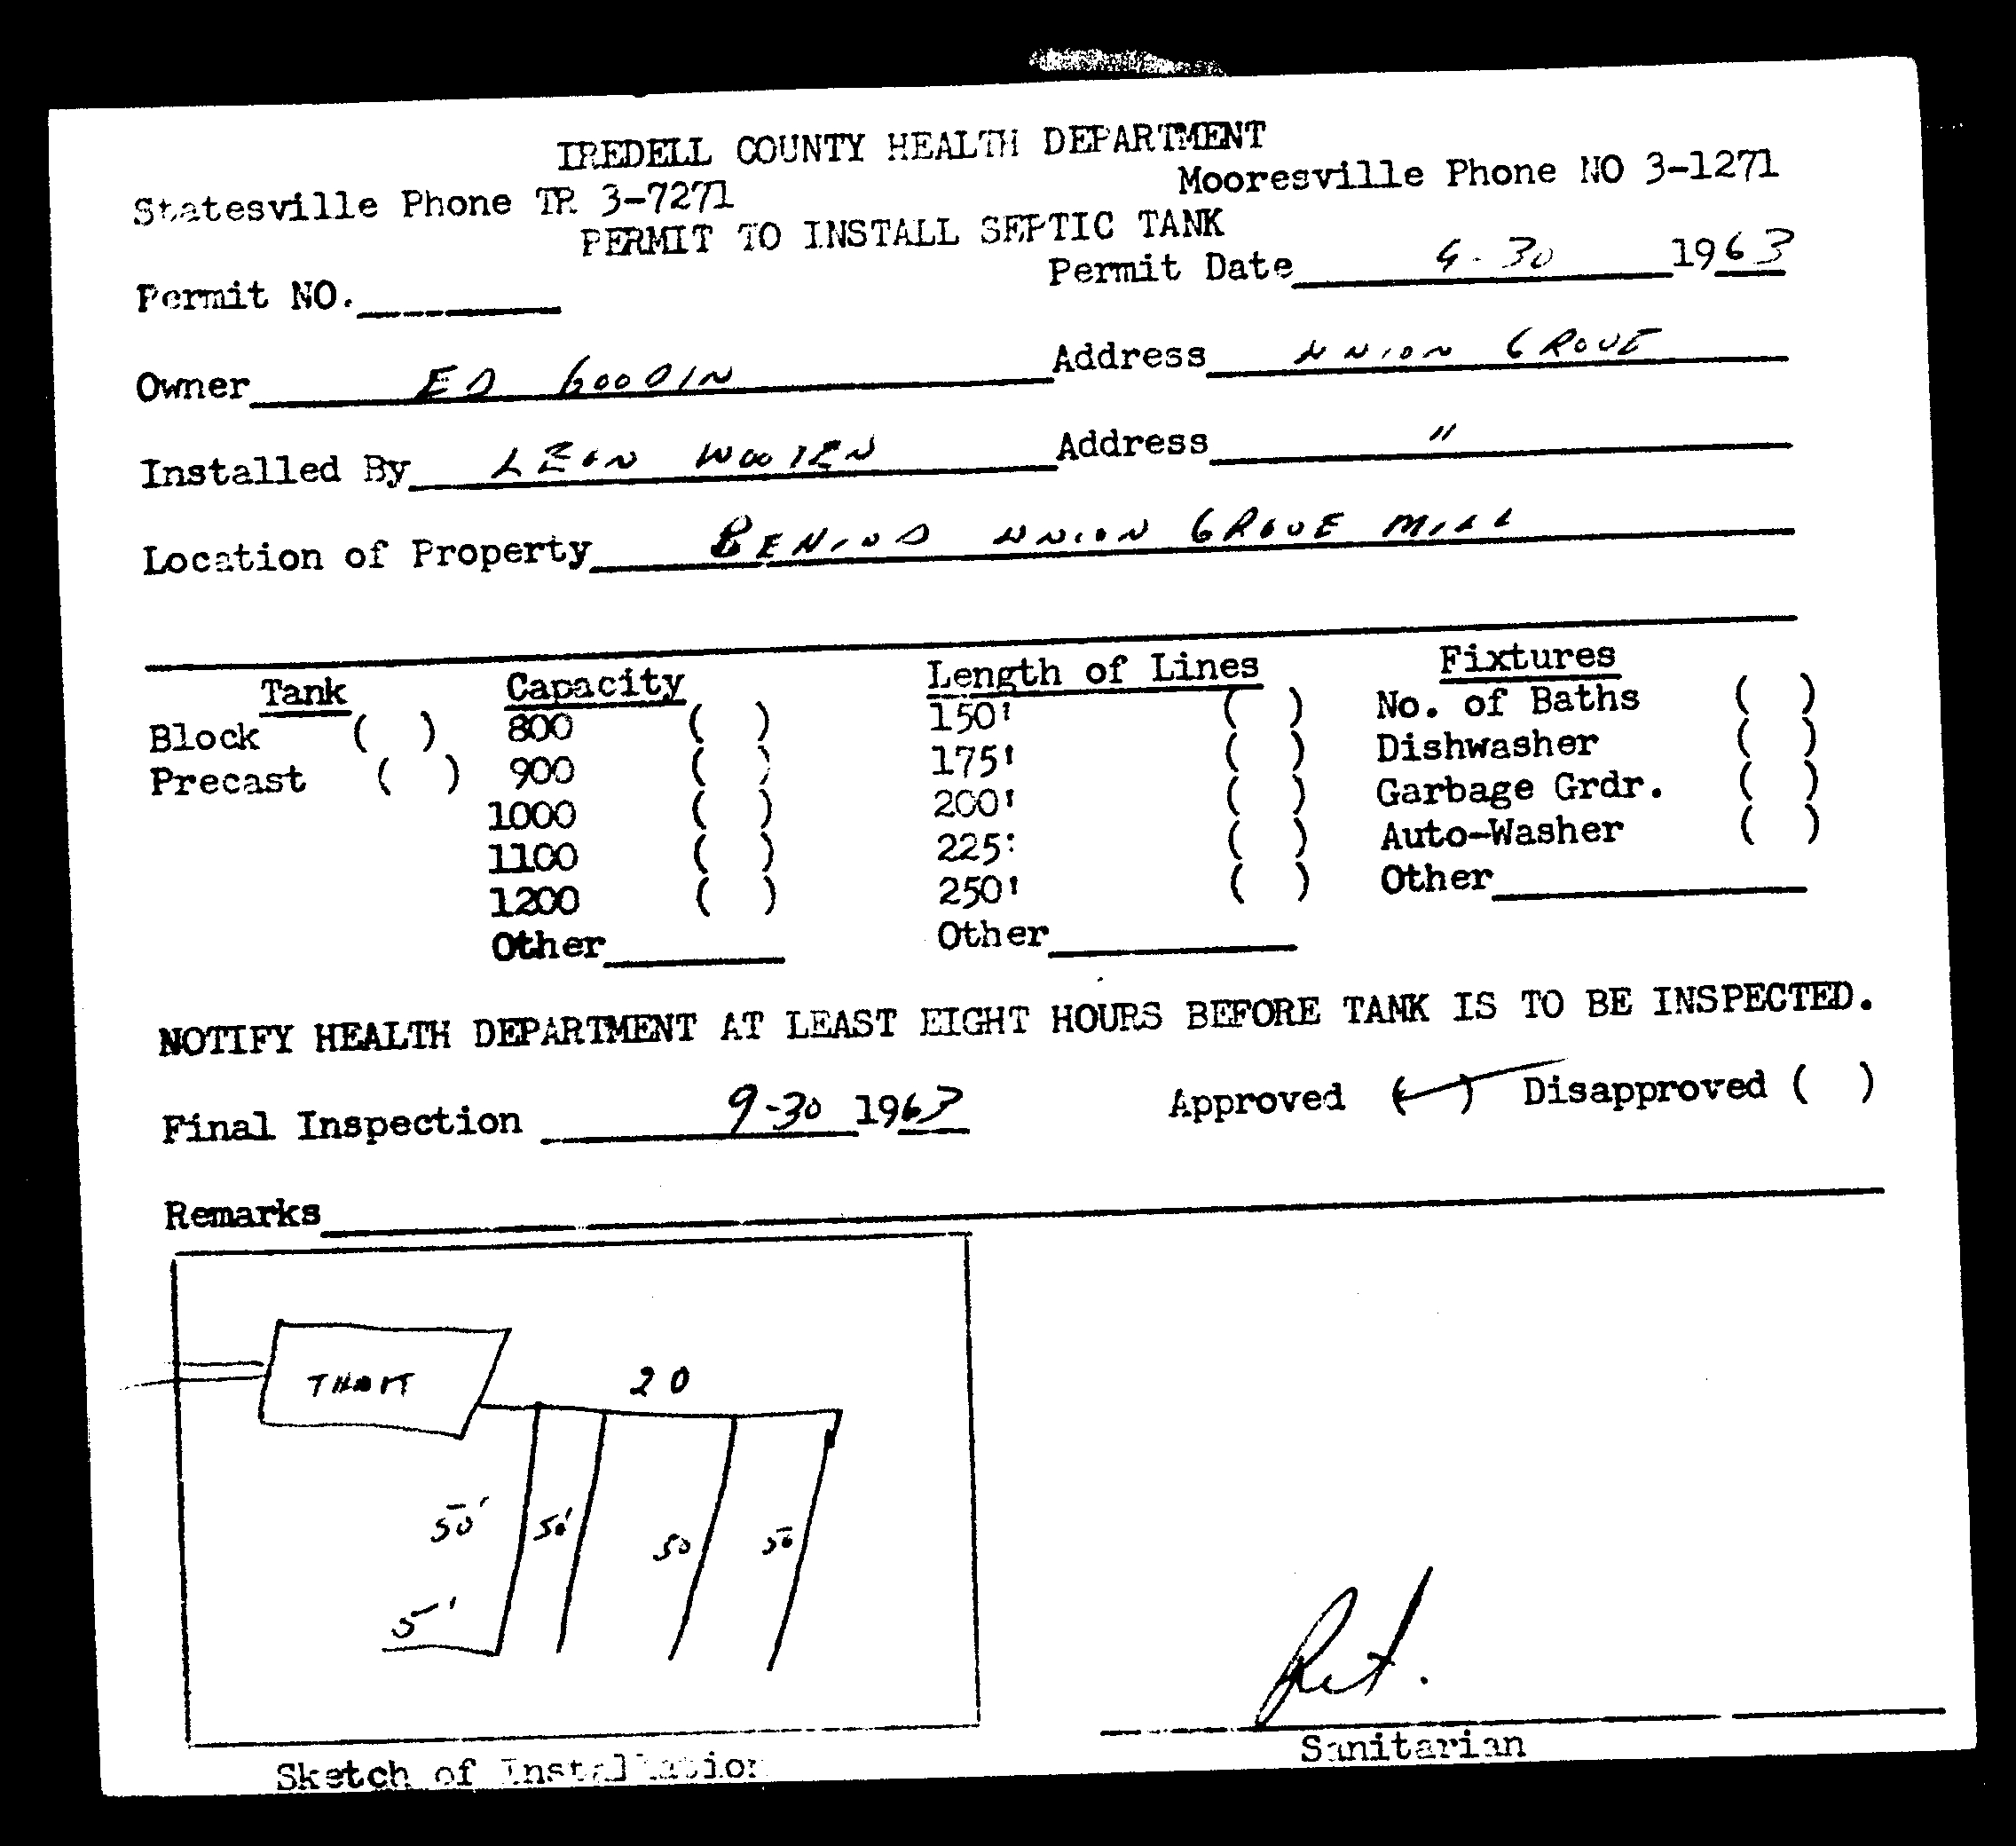 IREDELL COUNTY HEALTH DEPARTMENT
Statesville Phone TR 3-7271 Mooresville Phone NO 3-1271
PERMIT TO INSTALL SEPTIC TANK
Permit NO. Permit Date 9-30 1963
Owner ED GOODIN Address UNION GROVE
Installed By LEON WOOTEN Address "
Location of Property BEHIND UNION GROVE MILL
Tank Capacity Length of Lines Fixtures
Block ( ) 800 ( ) 150' ( ) No. of Baths ( )
Precast ( ) 900 ( ) 175' ( ) Dishwasher ( )
1000 ( ) 200' ( ) Garbage Grdr. ( )
1100 ( ) 225' ( ) Auto-Washer ( )
1200 ( ) 250' ( ) Other
Other Other
NOTIFY HEALTH DEPARTMENT AT LEAST EIGHT HOURS BEFORE TANK IS TO BE INSPECTED.
Final Inspection 9-30 1963 Approved (✓) Disapproved ( )
Remarks
20
50' 50' 50 50
5'
Sanitarian
Sketch of Installation